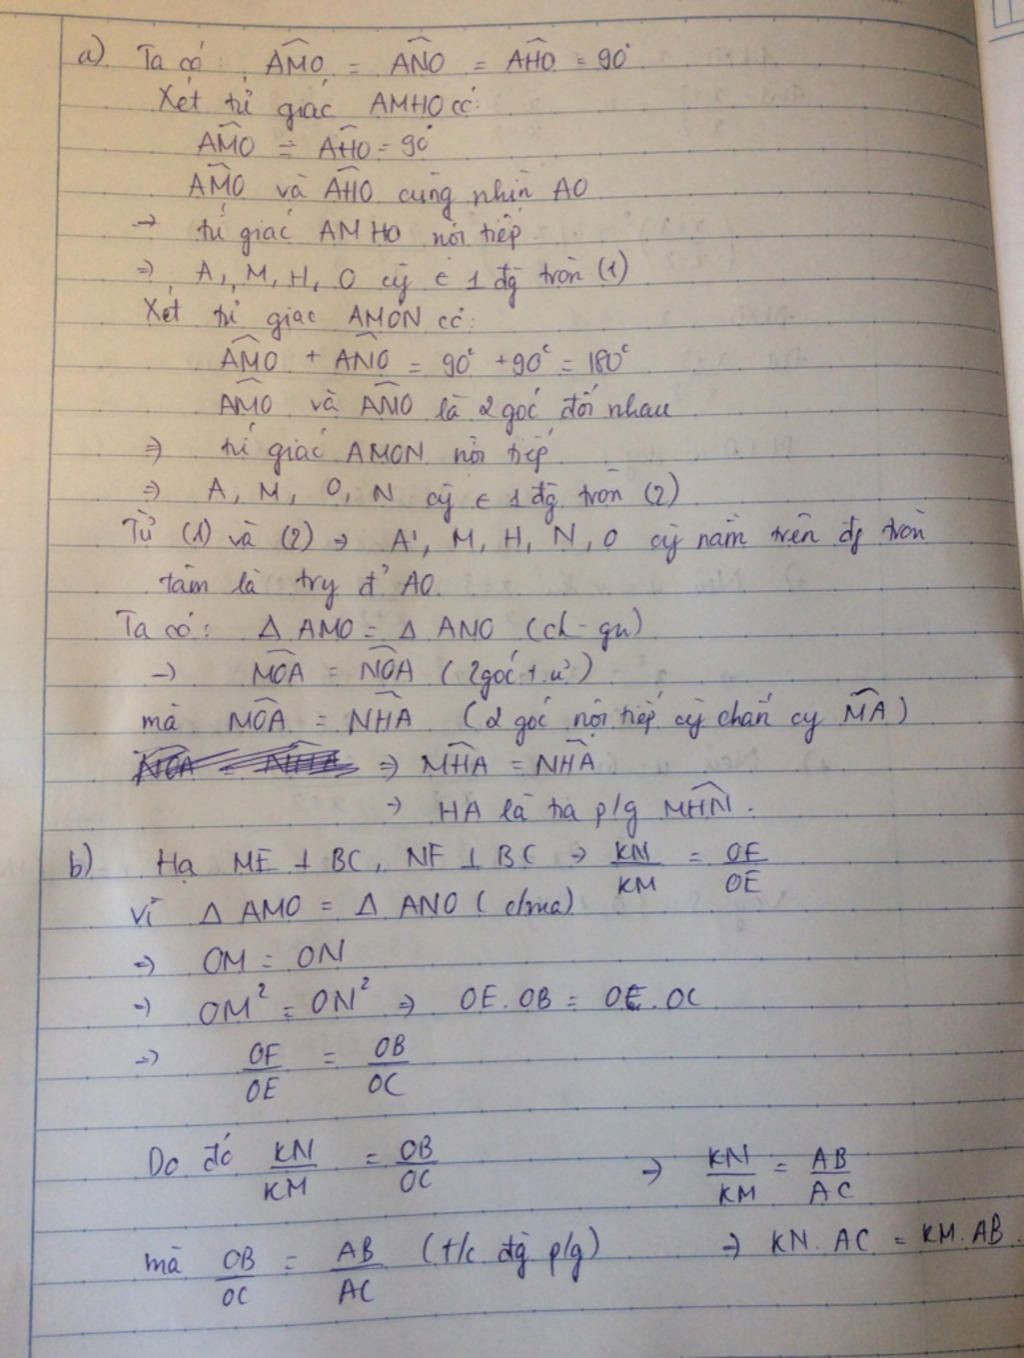 a) Ta có: AMO = ANO = AHO = 90°
Xét tứ giác AMHO có:
AMO = AHO = 90°
AMO và AHO cùng nhìn AO
→ tứ giác AMHO nội tiếp
⇒ A, M, H, O cg ∈ 1 đg tròn (1)
Xét tứ giác AMON có:
AMO + ANO = 90° + 90° = 180°
AMO và ANO là 2 góc đối nhau
⇒ tứ giác AMON nội tiếp
⇒ A, M, O, N cg ∈ 1 đg tròn (2)
Từ (1) và (2) ⇒ A, M, H, N, O cg nằm trên đg tròn
tâm là trg đ' AO.
Ta có: Δ AMO = Δ ANO (ch-gn)
→ MOA = NOA (2góc t.ư')
mà MOA = NHA (2 góc nội tiếp cg chắn cg MA)
NOA = NHA ⇒ MHA = NHA
→ HA là tia p/g MHN.
b) Hạ ME ⊥ BC, NF ⊥ BC ⇒ KN/KM = OF/OE
Vì Δ AMO = Δ ANO (c/ma)
⇒ OM = ON
⇒ OM² = ON² ⇒ OE.OB = OE.OC
⇒ OF/OE = OB/OC
Do đó KN/KM = OB/OC → KN/KM = AB/AC
mà OB/OC = AB/AC (t/c đg p/g) ⇒ KN.AC = KM.AB.